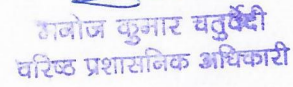 मनोज कुमार चतुर्वेदी
वरिष्ठ प्रशासनिक अधिकारी